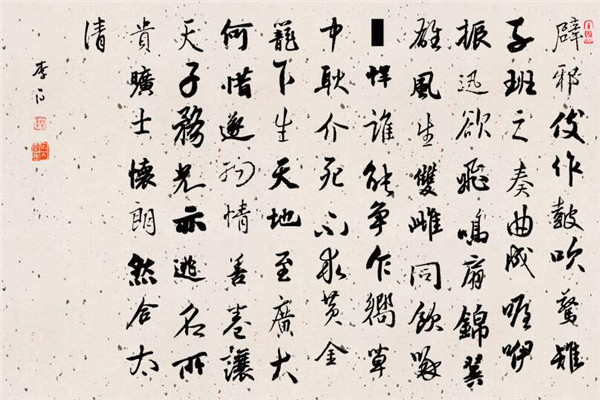 辟邪伎作鼓吹驚雉
子班之奏曲成喔咿
振迅欲飛鳴扇錦翼
雄風生雙雌同飲啄
悍誰能爭乍嚮草
中耿介死不求黃金
籠下生天地至廣大
何惜遂物情善卷讓
天子務光亦逃名所
貴曠士懷朗然合太
清
李白